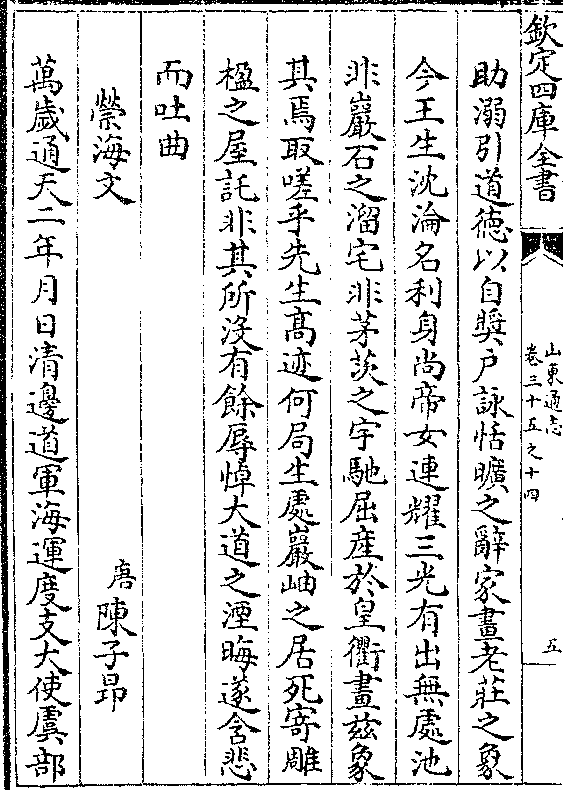 欽定四庫全書
山東通志
卷三十五之十四
五
助溺引道德以自獎户詠恬曠之辭家畫老莊之象
今王生沈淪名利身尚帝女連耀三光有出無處池
非巖石之溜宅非茅茨之宇馳屈產於皇衢畫兹象
其焉取嗟乎先生髙迹何局生處巖岫之居死寄雕
楹之屋託非其所沒有餘辱悼大道之湮晦遂含悲
而吐曲
禜海文
唐陳子昻
萬歲通天二年月日清邊道軍海運度支大使虞部